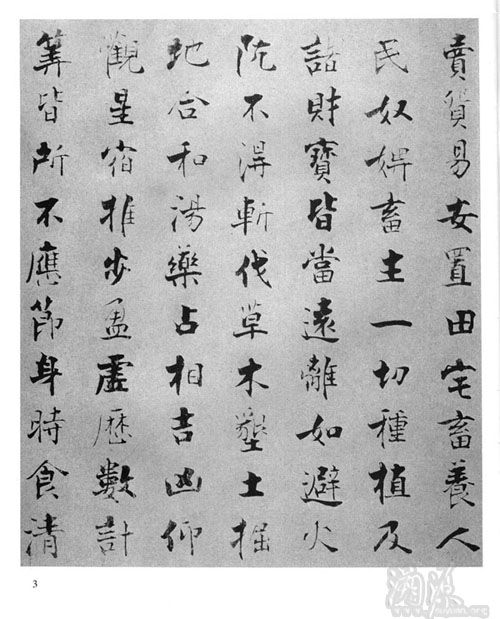 賣貿易安置田宅畜養人
民奴婢畜生一切種植及
諸財寶皆當遠離如避火
阬不得斬伐草木墾土掘
地合和湯藥占相吉凶仰
觀星宿推步盈虛歷數計
筭皆所不應節身時食清
3